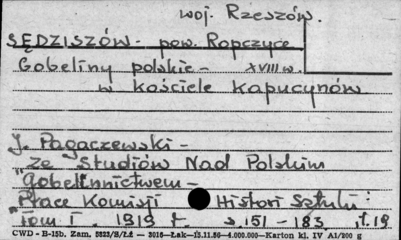 woj. Rzeszów.
SĘDZISZÓW - pow. Ropczyce
Gobeliny polskie - XVIII w.
w kościele Kapucynów
J. Pagaczewski -
Ze Studiów Nad Polskim
"Gobelinnictwem -
"Prace Komisji Histori Sztuki :
"Tom I. 1919 r. s. 151 - 183, il. 19
CWD - B-15b. Zam. 5823/B/Łż — 3016—Łak—15.11.56—4.000.000—Karton kl. IV A1/200 g